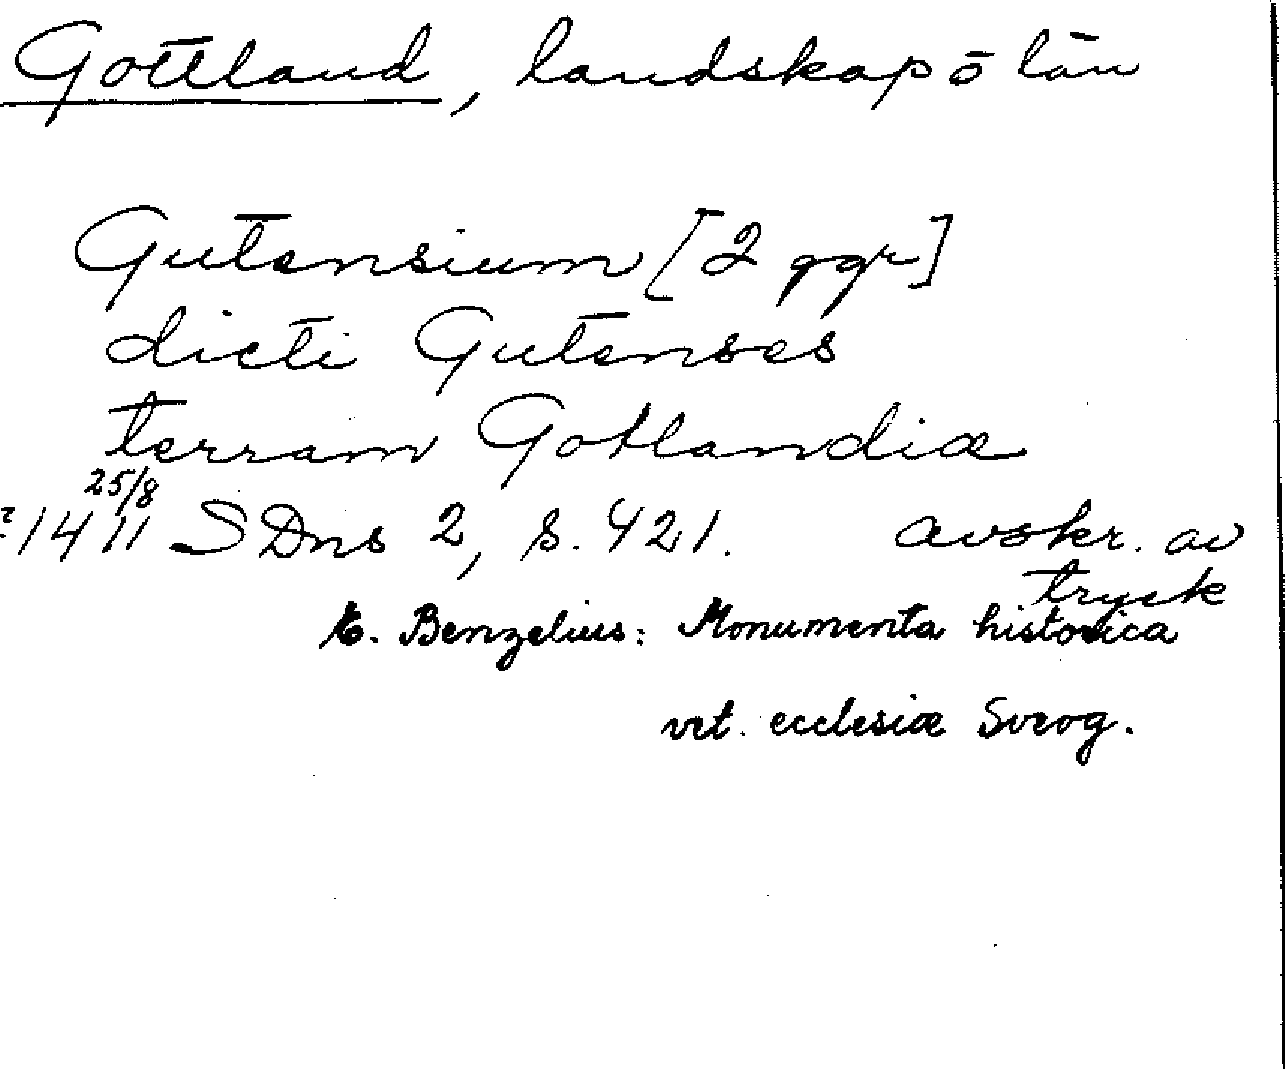 Gottland, landskap ō län
Gutensium [2 ggr]
dicti Gutenses
terram Gotlandiæ
25/8
1411 SDns 2, s. 421. avskr. av
tryck
E. Benzelius: Monumenta historica
vet. ecclesiæ Sveog.